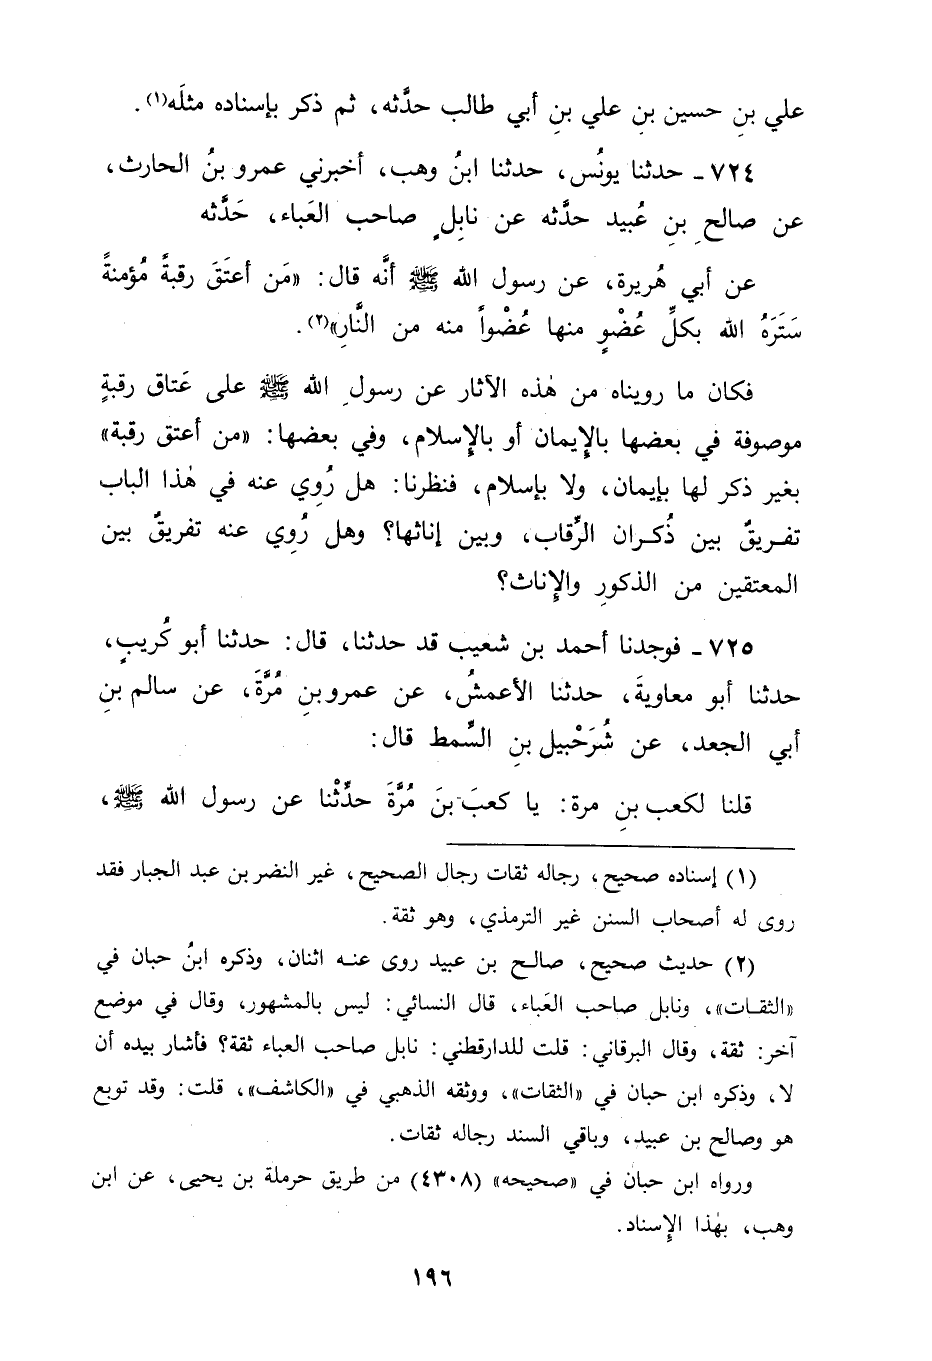 علي بنِ حسين بنِ علي بنِ أبي طالب حدَّثه، ثم ذكر بإسناده مثلَه(١).
٧٢٤ - حدثنا يونُس، حدثنا ابنُ وهب، أخبرني عمرو بنُ الحارث،
عن صالحِ بنِ عُبيد حدَّثه عن نابِلٍ صاحب العَباء، حَدَّثه
عن أبي هُريرة، عن رسول الله ﷺ أنَّه قال: «مَن أعتَقَ رقبةً مُؤمنةً
سَتَرَهُ الله بكلِّ عُضْوٍ منها عُضْواً منه من النَّارِ»(٢).
فكان ما رويناه من هٰذه الآثار عن رسولِ الله ﷺ على عَتاق رقبةٍ
موصوفة في بعضها بالإِيمان أو بالإِسلام، وفي بعضها: «من أعتق رقبة»
بغير ذكر لها بإيمان، ولا بإسلام، فنظرنا: هل رُوِي عنه في هٰذا الباب
تفريقٌ بين ذُكران الرِّقاب، وبين إناثها؟ وهل رُوِي عنه تفريقٌ بين
المعتقين من الذكورِ والإِناث؟
٧٢٥ - فوجدنا أحمد بن شعيب قد حدثنا، قال: حدثنا أبو كُريبٍ،
حدثنا أبو معاويةَ، حدثنا الأعمشُ، عن عمرو بنِ مُرَّةَ، عن سالم بنِ
أبي الجعد، عن شُرَحْبيل بنِ السِّمط قال:
قلنا لكعب بنِ مرة: يا كعبَ بنَ مُرَّةَ حدِّثْنا عن رسول الله ﷺ،
(١) إسناده صحيح، رجاله ثقات رجال الصحيح، غير النضر بن عبد الجبار فقد
روى له أصحاب السنن غير الترمذي، وهو ثقة.
(٢) حديث صحيح، صالح بن عبيد روى عنه اثنان، وذكره ابنُ حبان في
«الثقات»، ونابل صاحب العَباء، قال النسائي: ليس بالمشهور، وقال في موضع
آخر: ثقة، وقال البرقاني: قلت للدارقطني: نابل صاحب العباء ثقة؟ فأشار بيده أن
لا، وذكره ابن حبان في «الثقات»، ووثقه الذهبي في «الكاشف»، قلت: وقد توبع
هو وصالح بن عبيد، وباقي السند رجاله ثقات.
ورواه ابن حبان في «صحيحه» (٤٣٠٨) من طريق حرملة بن يحيى، عن ابن
وهب، بهٰذا الإِسناد.
١٩٦